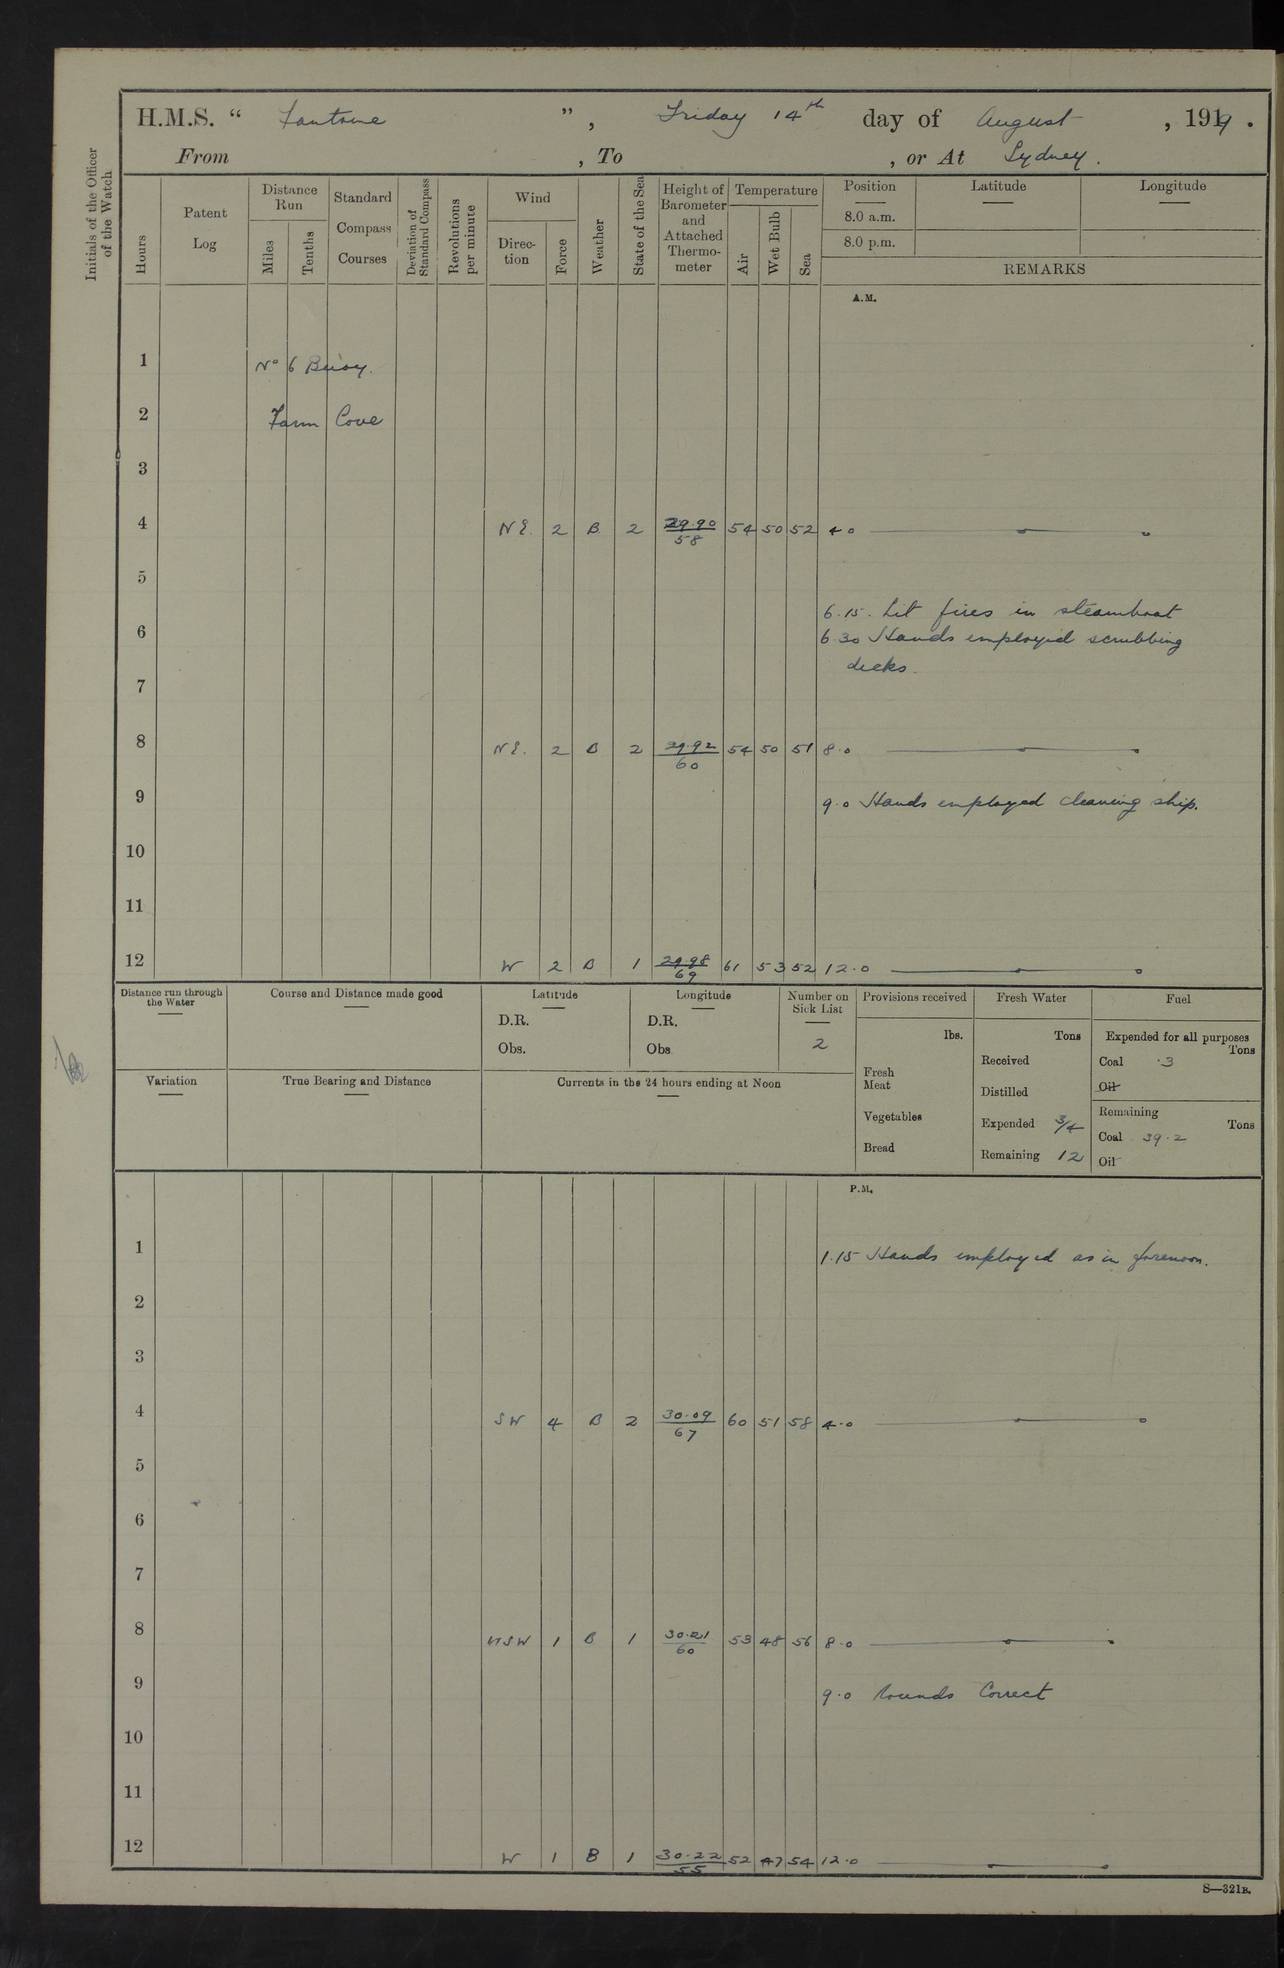 H.M.S. " Fantome ", Friday 14th day of August, 1919.
From , To , or At Sydney.
Initials of the Officer of the Watch
Hours
Patent Log
Distance Run
Miles
Tenths
Standard Compass Courses
Deviation of Standard Compass
Revolutions per minute
Wind
Direction
Force
Weather
State of the Sea
Height of Barometer and Attached Thermometer
Temperature
Air
Wet Bulb
Sea
Position
8.0 a.m.
8.0 p.m.
Latitude
Longitude
REMARKS
A.M.
1 No 6 Buoy.
2 Farm Cove
3
4 N E. 2 B. 2 29.90 54 50 52 4 0
58
5
6.15. Lit fires in steamboat
6 6.30 Hands employed scrubbing
decks.
7
8 N E. 2 B 2 29.92 54 50 51 8.0
60
9 9.0 Hands employed cleaning ship.
10
11
12 W 2 B 1 29.98 61 53 52 12.0
69
Distance run through the Water
Course and Distance made good
Latitude
D.R.
Obs.
Longitude
D.R.
Obs
Number on Sick List
2
Provisions received
lbs.
Fresh Meat
Vegetables
Bread
Fresh Water
Tons
Received
Distilled
Expended 3/4
Remaining 12
Fuel
Expended for all purposes
Tons
Coal .3
Oil
Remaining
Tons
Coal 39.2
Oil
Variation
True Bearing and Distance
Currents in the 24 hours ending at Noon
P.M.
1 1.15 Hands employed as in forenoon.
2
3
4 SW 4 B 2 30.09 60 51 58 4.0
67
5
6
7
8 WSW 1 B 1 30.21 53 48 56 8.0
60
9 9.0 Rounds Correct
10
11
12 W 1 B 1 30.22 52 47 54 12.0
55
S—321B.